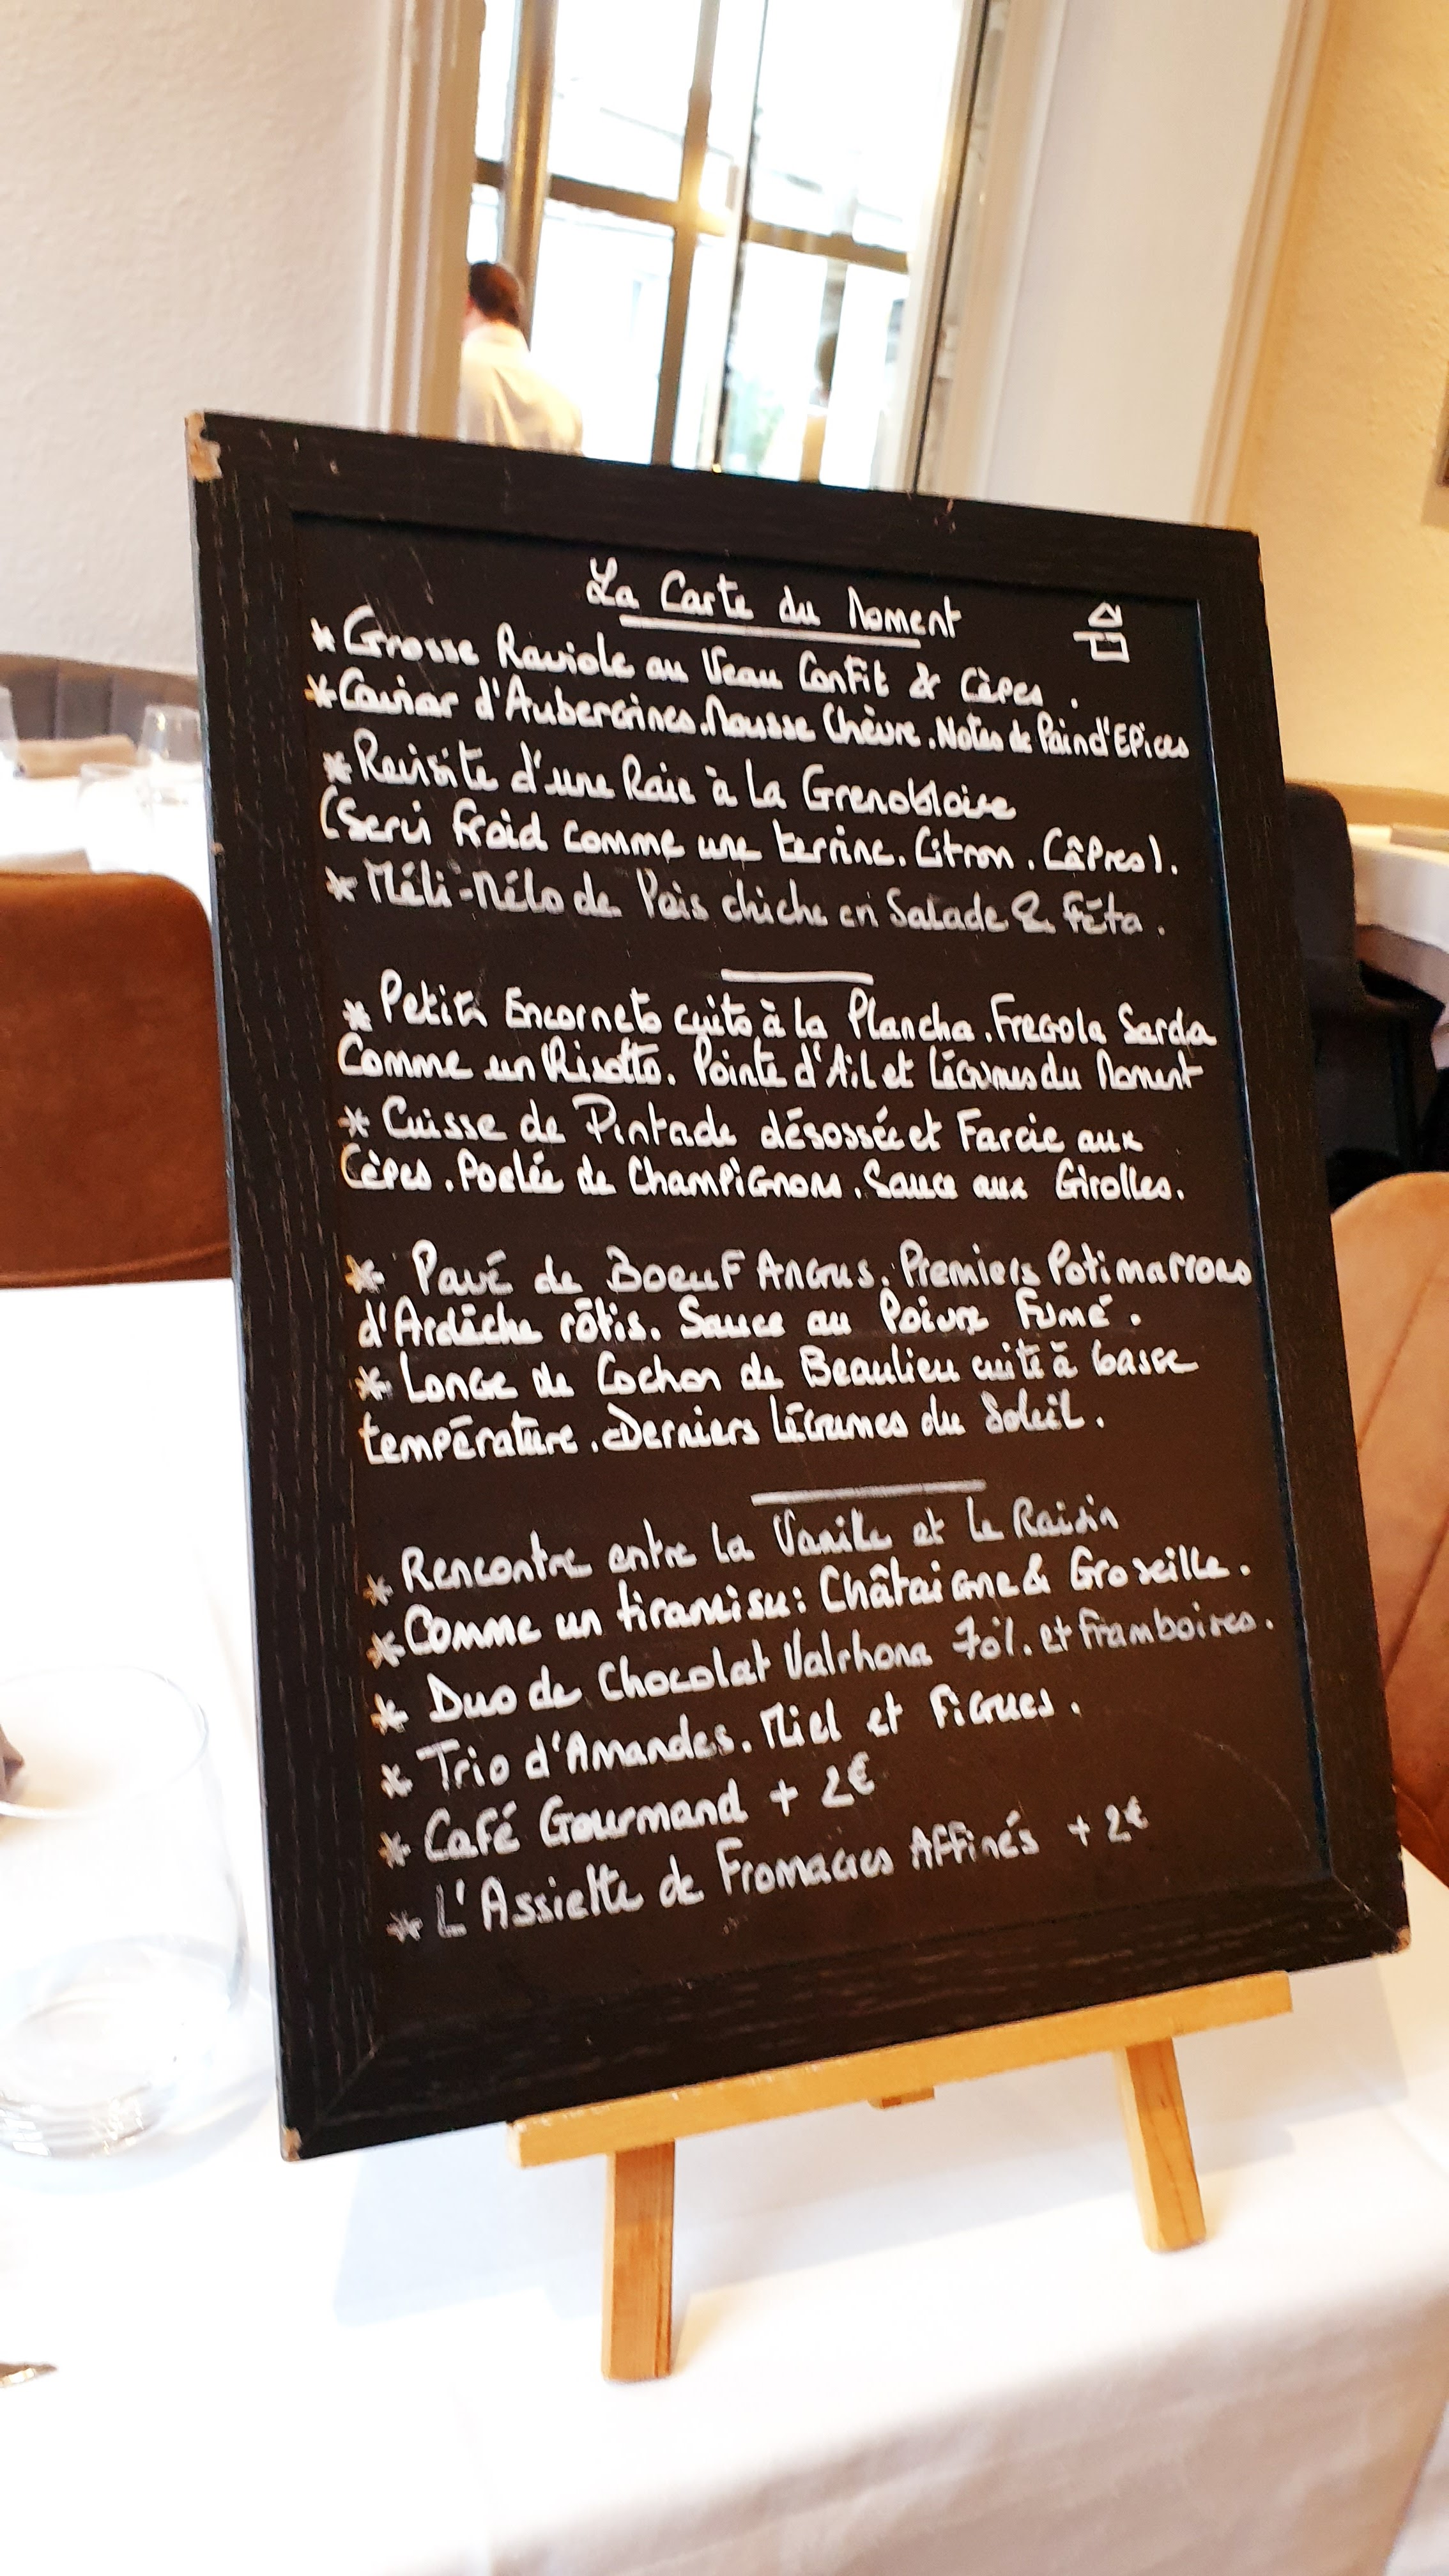 La Carte du Moment
* Grosse Raviole au Veau Confit & Cèpes.
* Caviar d'Aubergines. Mousse Chèvre. Notes de Pain d'Epices
* Revisite d'une Raie à La Grenobloise
(Servi froid comme une terrine. Citron. Câpres).
* Méli-Mélo de Pois chiche en Salade & Fêta.
* Petits Encornets cuits à la Plancha. Fregola Sarda
Comme un Risotto. Pointe d'Ail et Légumes du Moment
* Cuisse de Pintade désossée et Farcie aux
Cèpes. Poelée de Champignons. Sauce aux Girolles.
* Pavé de Boeuf Angus. Premiers Potimarrons
d'Ardèche rôtis. Sauce au Poivre Fumé.
* Longe de Cochon de Beaulieu cuite à basse
température. Derniers Légumes du Soleil.
* Rencontre entre la Vanille et le Raisin
* Comme un tiramisu: Châtaigne & Groseille.
* Duo de Chocolat Valrhona 70%. et Framboises.
* Trio d'Amandes. Miel et Figues.
* Café Gourmand + 2€
* L'Assiette de Fromages Affinés + 2€